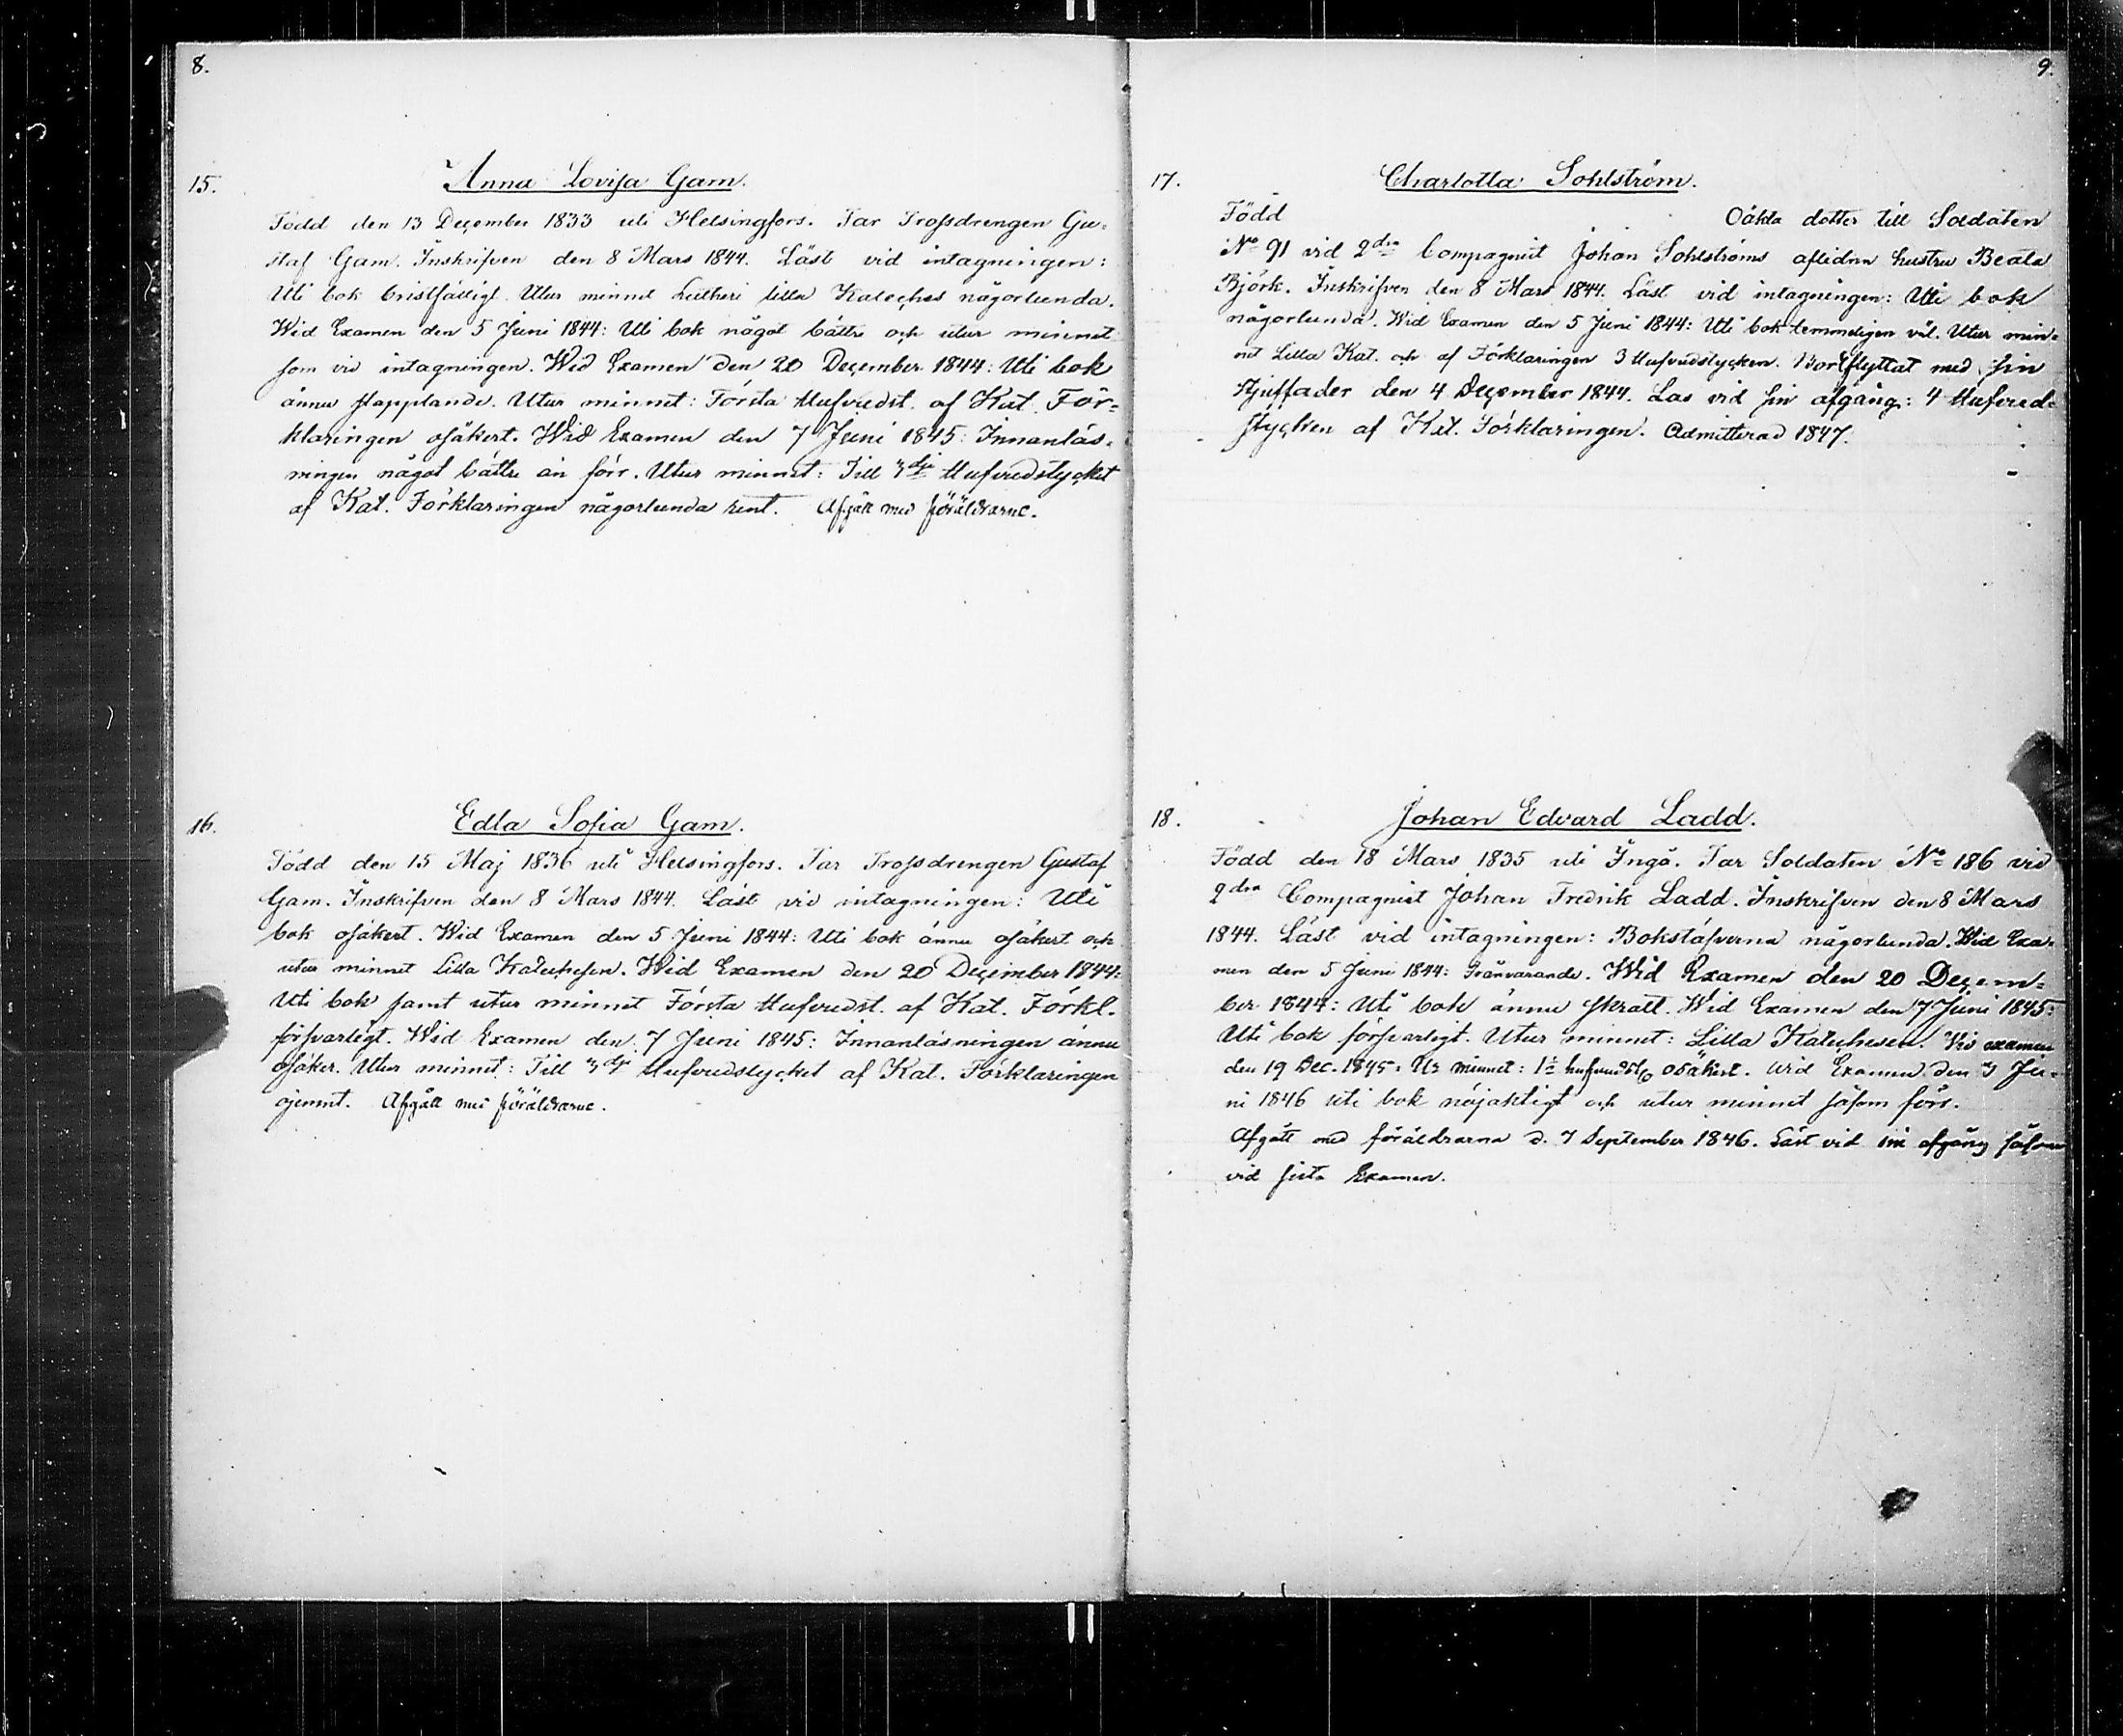 8.
15. Anna Lovisa Gam.
Född den 13 December 1833 uti Helsingfors. Far Trossdrengen Gu-
staf Gam. Inskrifven den 8 Mars 1844. Läst vid intagningen:
Uti bok bristfälligt. Utur minnet Lutheri lilla Kateches någorlunda.
Wid Examen den 5 Juni 1844: Uti bok något bättre och utur minnet
som vid intagningen. Wid Examen den 20 December 1844: Uti bok
ännu stapplande. Utur minnet: Första Hufvudst. af Kat. För-
klaringen osäkert. Wid Examen den 7 Juni 1845: Innanläs-
ningen något bättre än förr. Utur minnet: Till 3dje Hufvudstycket
af Kat. Förklaringen någorlunda rent. Afgått med föräldrarne.
16. Edla Sofia Gam.
Född den 15 Maj 1836 uti Helsingfors. Far Trossdrengen Gustaf
Gam. Inskrifven den 8 Mars 1844. Läst vid intagningen: Uti
bok osäkert. Wid Examen den 5 Juni 1844: Uti bok ännu osäkert och
utur minnet Lilla Katechesen. Wid Examen den 20 December 1844:
Uti bok samt utur minnet Första Hufvudst. af Kat. Förkl.
försvarligt. Wid Examen den 7 Juni 1845: Innanläsningen ännu
osäker. Utur minnet: Till 3dje Hufvudstycket af Kat. Förklaringen
ojemnt. Afgått med föräldrarne.
9.
17. Charlotta Sohlström.
Född Oäkta dotter till Soldaten
No 91 vid 2dra Compagniet Johan Sohlströms aflidna hustru Beata
Björk. Inskrifven den 8 Mars 1844. Läst vid intagningen: Uti bok
någorlunda. Wid Examen den 5 Juni 1844: Uti bok temmeligen väl. Utur min-
net Lilla Kat. och af Förklaringen 3 Hufvudstycken. Bortflyttat med sin
Stjuffader den 4 December 1844. Las vid sin afgång: 4 Hufvud-
stycken af Kat. Förklaringen. Admitterad 1847.
18. Johan Edvard Ladd.
Född den 18 Mars 1835 uti Ingå. Far Soldaten No 186 vid
2dra Compagniet Johan Fredrik Ladd. Inskrifven den 8 Mars
1844. Läst vid intagningen: Bokstäfverna någorlunda. Wid Exa-
men den 5 Juni 1844: Frånvarande. Wid Examen den 20 Decem-
ber 1844: Uti bok ännu skralt. Wid Examen den 7 Juni 1845:
Uti bok försvarligt. Utur minnet: Lilla Katechesen. Vid examen
den 19 Dec. 1845. Ur minnet: 1sta hufvudst. osäkert. Wid Examen den 3 Ju-
ni 1846 uti bok nöjaktigt och utur minnet såsom förr.
Afgått med föräldrarna d. 7 September 1846. Läst vid afgång såsom
vid sista Examen.